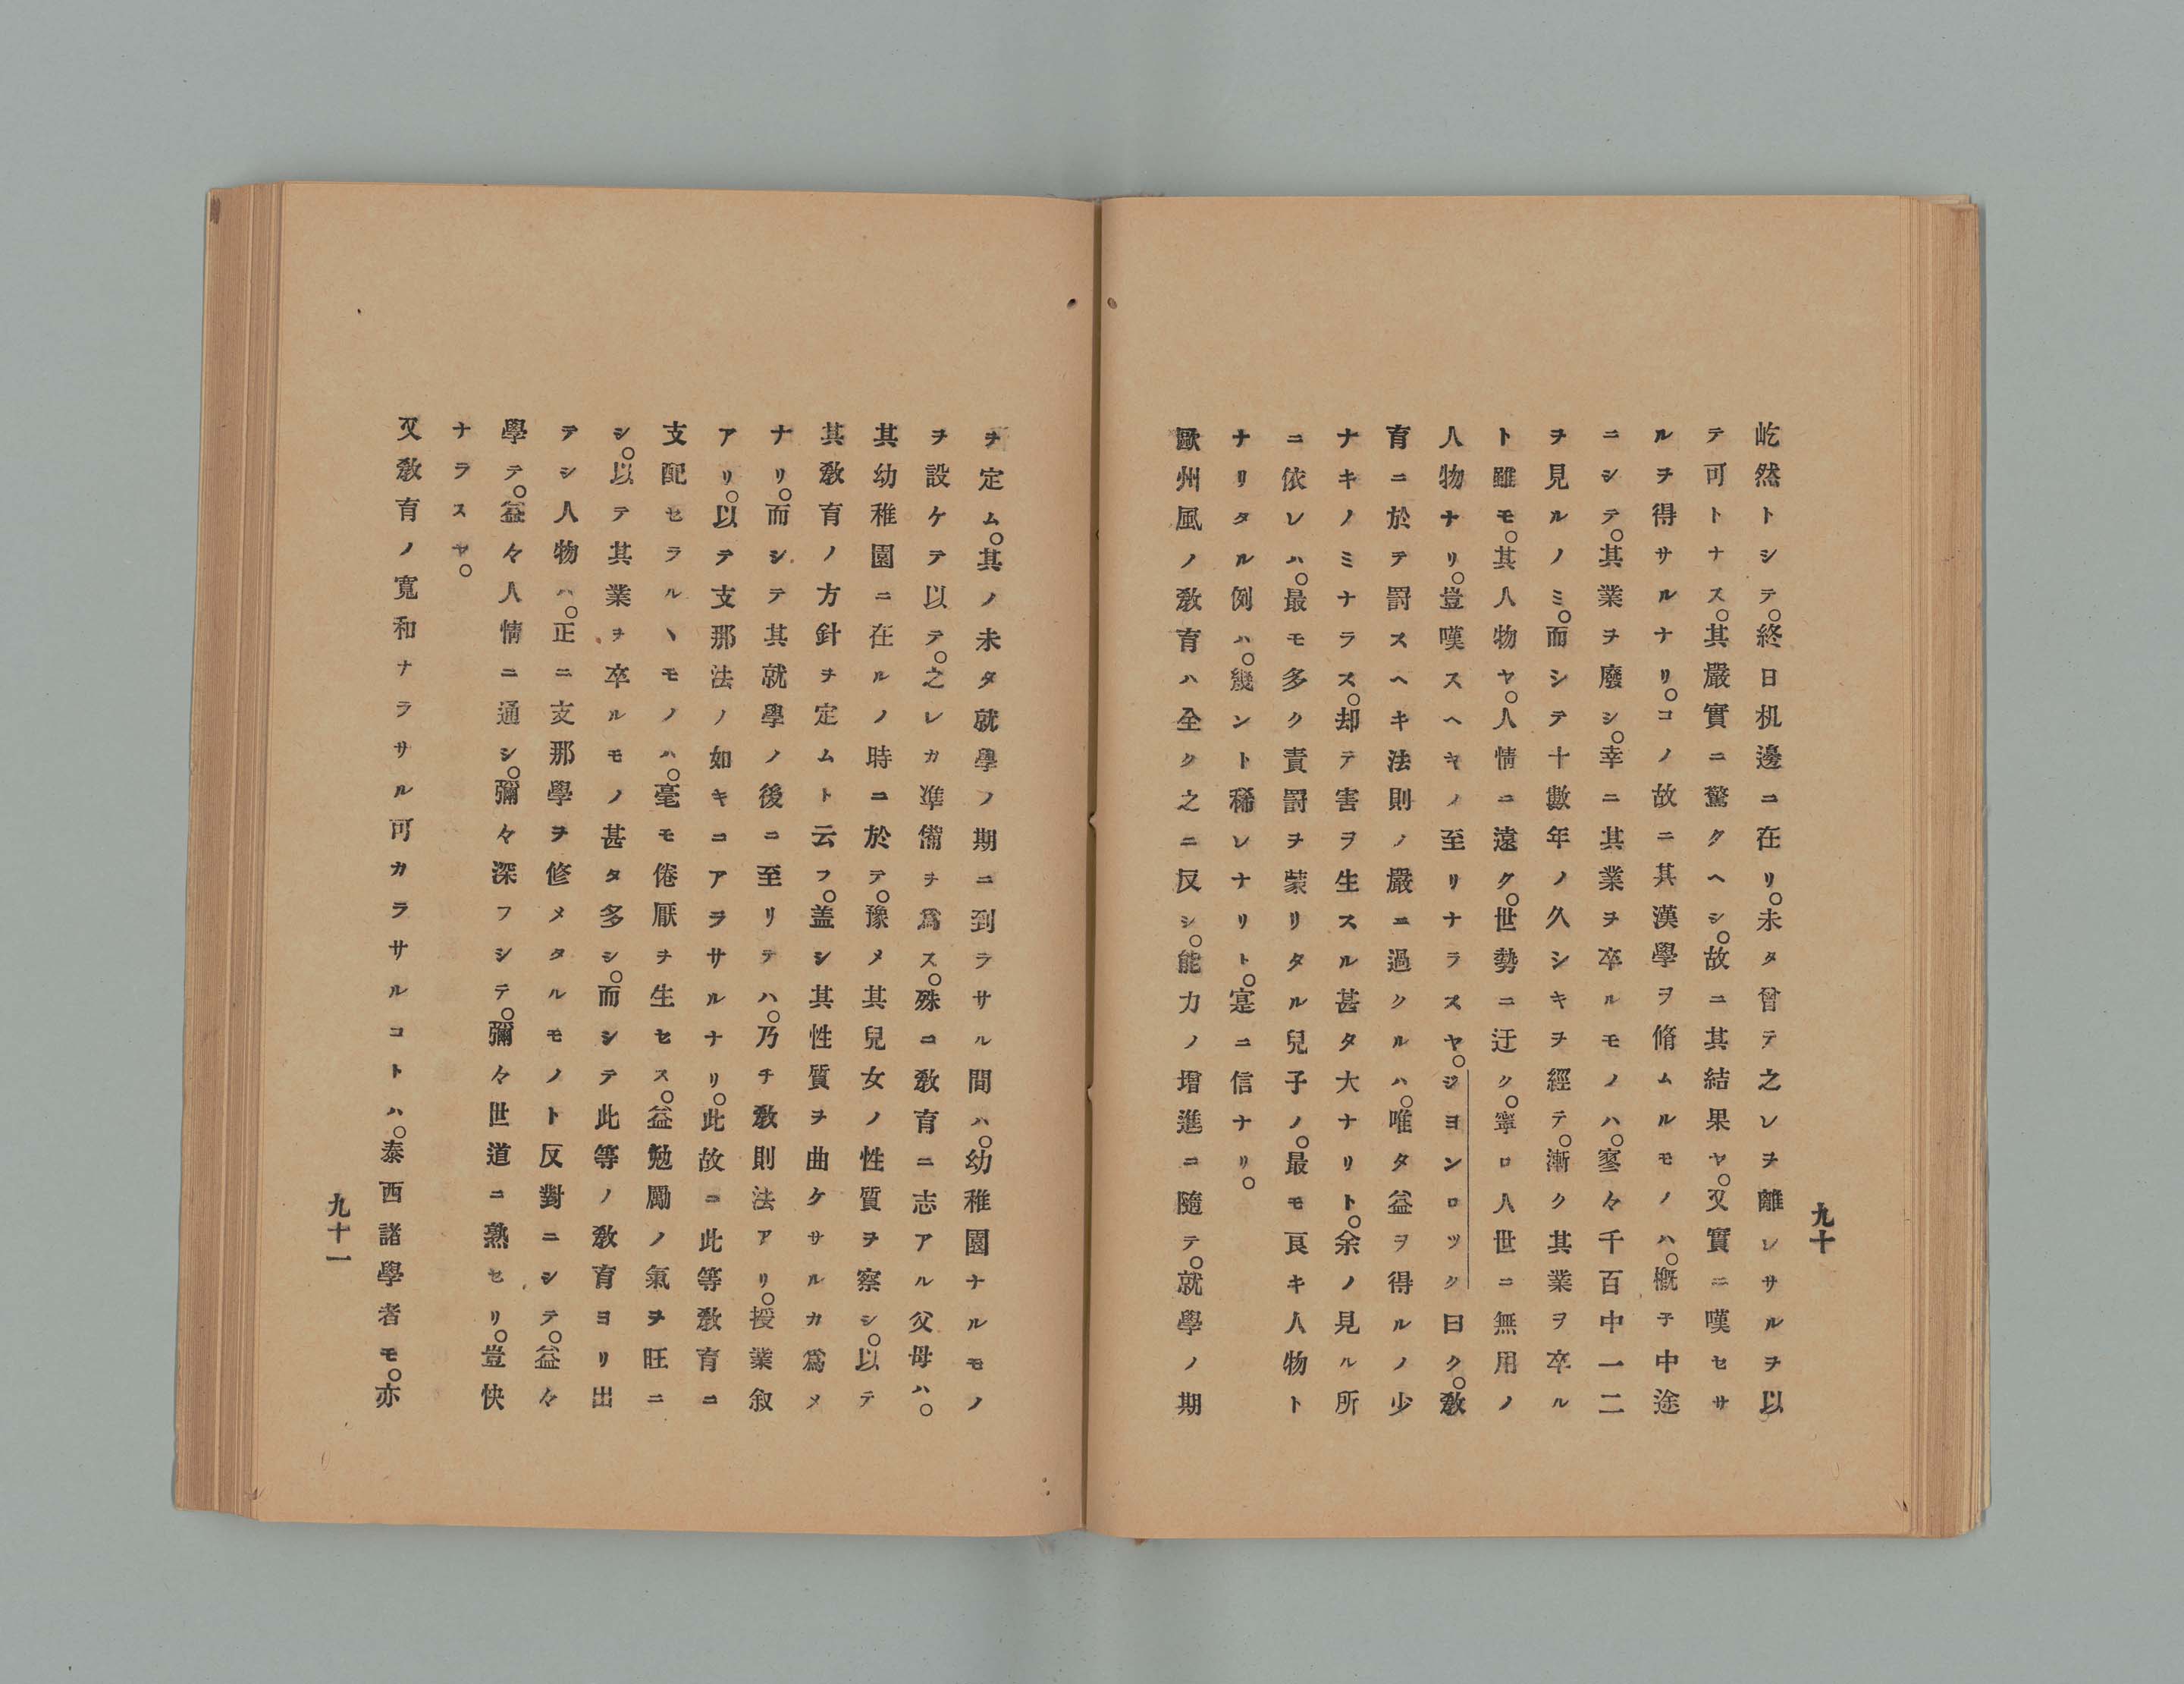 九十
屹然トシテ。終日机邊ニ在リ。未タ曾テ之レヲ離レサルヲ以
テ可トナス。其嚴實ニ驚クヘシ。故ニ其結果ヤ。又實ニ嘆セサ
ルヲ得サルナリ。コノ故ニ其漢學ヲ脩ムルモノハ。概子中途
ニシテ。其業ヲ廢シ。幸ニ其業ヲ卒ルモノハ。寥々千百中一二
ヲ見ルノミ。而シテ十數年ノ久シキヲ經テ。漸ク其業ヲ卒ル
ト雖モ。其人物ヤ。人情ニ遠ク。世勢ニ迂ク。寧ロ人世ニ無用ノ
人物ナリ。豈嘆スヘキノ至リナラスヤ。ジヨンロツク曰ク。敎
育ニ於テ罸スヘキ法則ノ嚴ニ過クルハ。唯タ益ヲ得ルノ少
ナキノミナラス。却テ害ヲ生スル甚タ大ナリト。余ノ見ル所
ニ依レハ。最モ多ク責罸ヲ蒙リタル兒子ノ。最モ良キ人物ト
ナリタル例ハ。幾ント稀レナリト。寔ニ信ナリ。
歐州風ノ敎育ハ全ク之ニ反シ。能力ノ增進ニ隨テ。就學ノ期
ヲ定ム。其ノ未タ就學ノ期ニ到ラサル間ハ。幼稚園ナルモノ
ヲ設ケテ以テ。之レカ準備ヲ爲ス。殊ニ敎育ニ志アル父母ハ。
其幼稚園ニ在ルノ時ニ於テ。豫メ其兒女ノ性質ヲ察シ。以テ
其敎育ノ方針ヲ定ムト云フ。盖シ其性質ヲ曲ケサルカ爲メ
ナリ。而シテ其就學ノ後ニ至リテハ。乃チ敎則法アリ。授業叙
アリ。以テ支那法ノ如キコアラサルナリ。此故ニ此等敎育ニ
支配セラルヽモノハ。毫モ倦厭ヲ生セス。益勉勵ノ氣ヲ旺ニ
シ。以テ其業ヲ卒ルモノ甚タ多シ。而シテ此等ノ敎育ヨリ出
テシ人物ハ。正ニ支那學ヲ修メタルモノト反對ニシテ。益々
學テ。益々人情ニ通シ。彌々深フシテ。彌々世道ニ熟セリ。豈快
ナラスヤ。
又敎育ノ寬和ナラサル可カラサルコトハ。泰西諸學者モ。亦
九十一